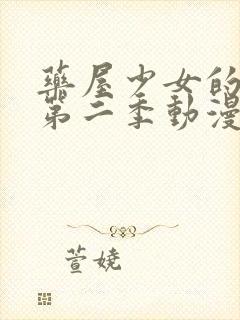 藥屋少女的
第二季動漫
萱嬈